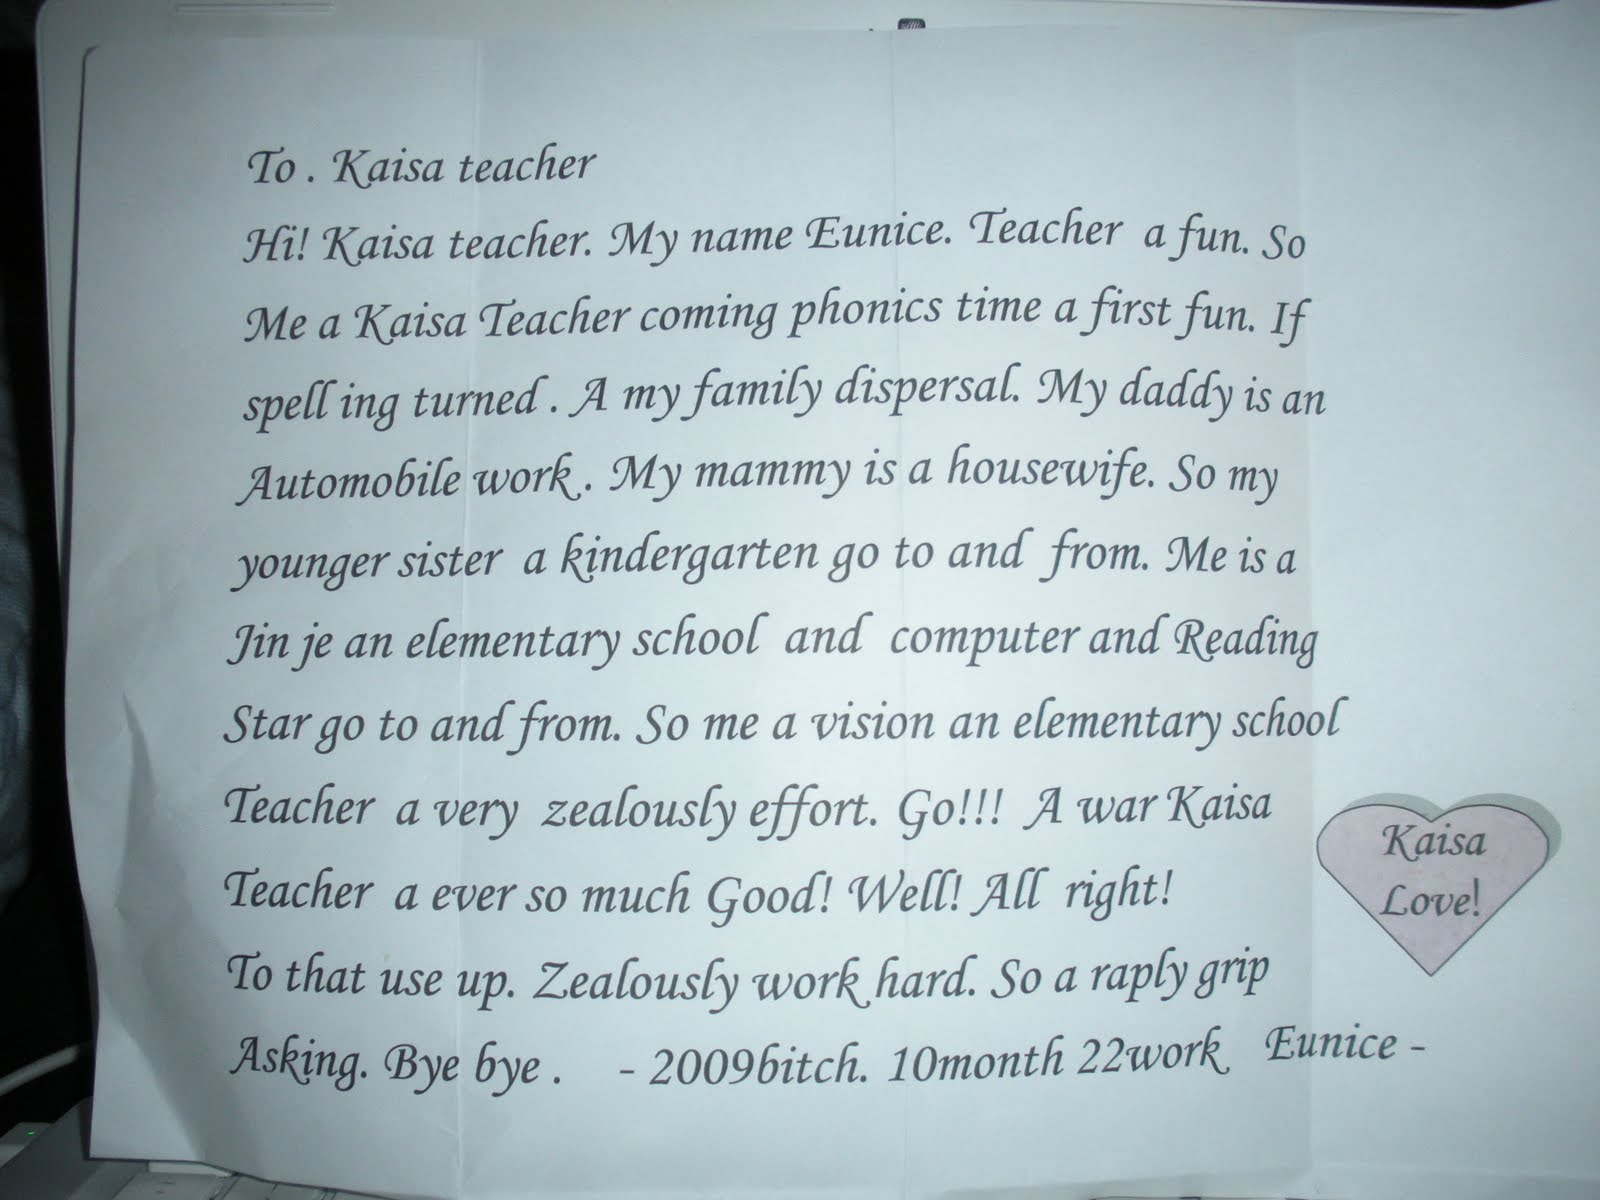 To . Kaisa teacher
Hi! Kaisa teacher. My name Eunice. Teacher a fun. So
Me a Kaisa Teacher coming phonics time a first fun. If
spell ing turned . A my family dispersal. My daddy is an
Automobile work . My mammy is a housewife. So my
younger sister a kindergarten go to and from. Me is a
Jin je an elementary school and computer and Reading
Star go to and from. So me a vision an elementary school
Teacher a very zealously effort. Go!!! A war Kaisa
Teacher a ever so much Good! Well! All right!
Kaisa
Love!
To that use up. Zealously work hard. So a raply grip
Asking. Bye bye . - 2009bitch. 10month 22work Eunice -